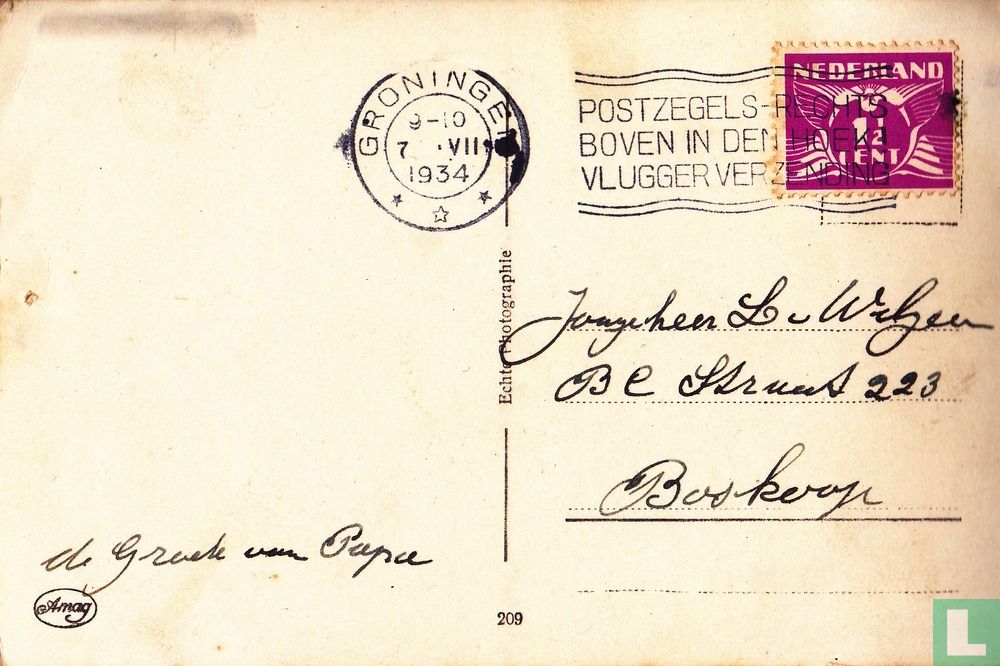 GRONINGEN
9-10
7 VII
1934
POSTZEGELS-RECHTS
BOVEN IN DEN HOEK!
VLUGGER VERZENDING
NEDERLAND
1½
CENT
Echte Photographie
Jongeheer L v Wilgen
B C Straat 223
Boskoop
de Groete van Papa
Amag
209
L